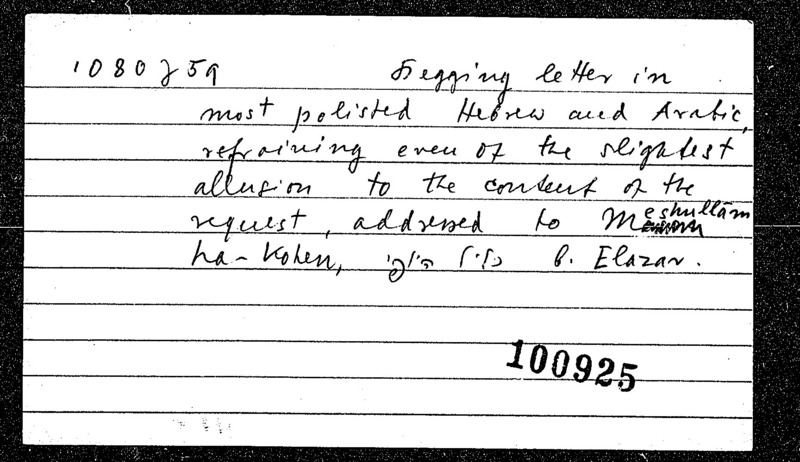 1080 J 59 Begging letter in
most polished Hebrew and Arabic,
refraining even of the slightest
allusion to the content of the
request, addressed to Meshullām
ha-Kohen, b. Elazar.
100925